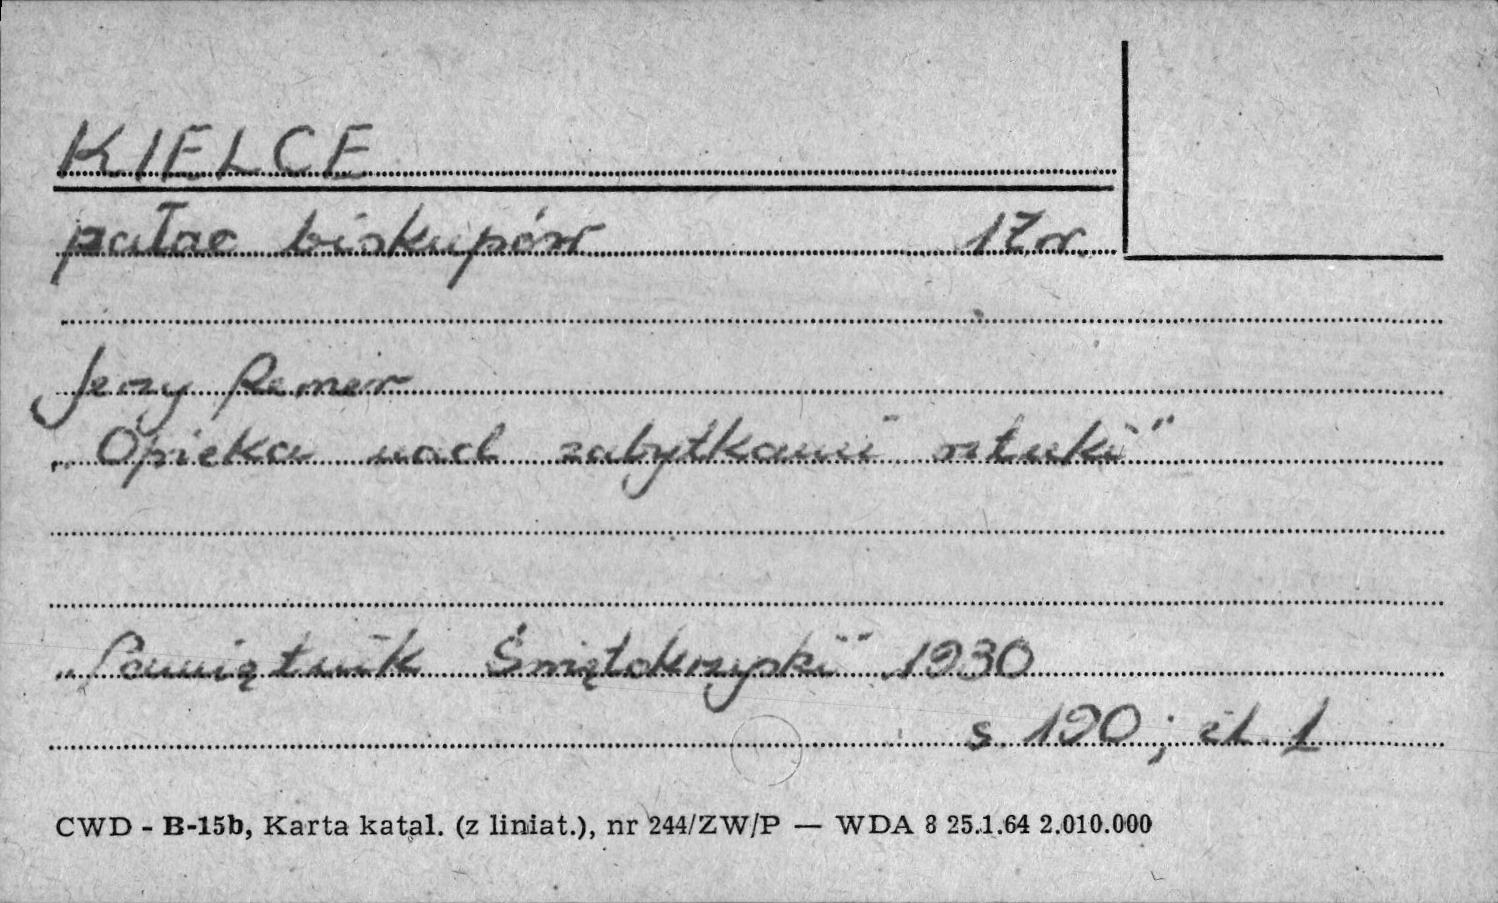 KIELCE
pałac biskupów 17 w.
Jerzy Remer
„Opieka nad zabytkami sztuki"
„Pamiętnik Świętokrzyski" 1930
s. 190; il. 1
CWD - B-15b, Karta katal. (z liniat.), nr 244/ZW/P — WDA 8 25.1.64 2.010.000